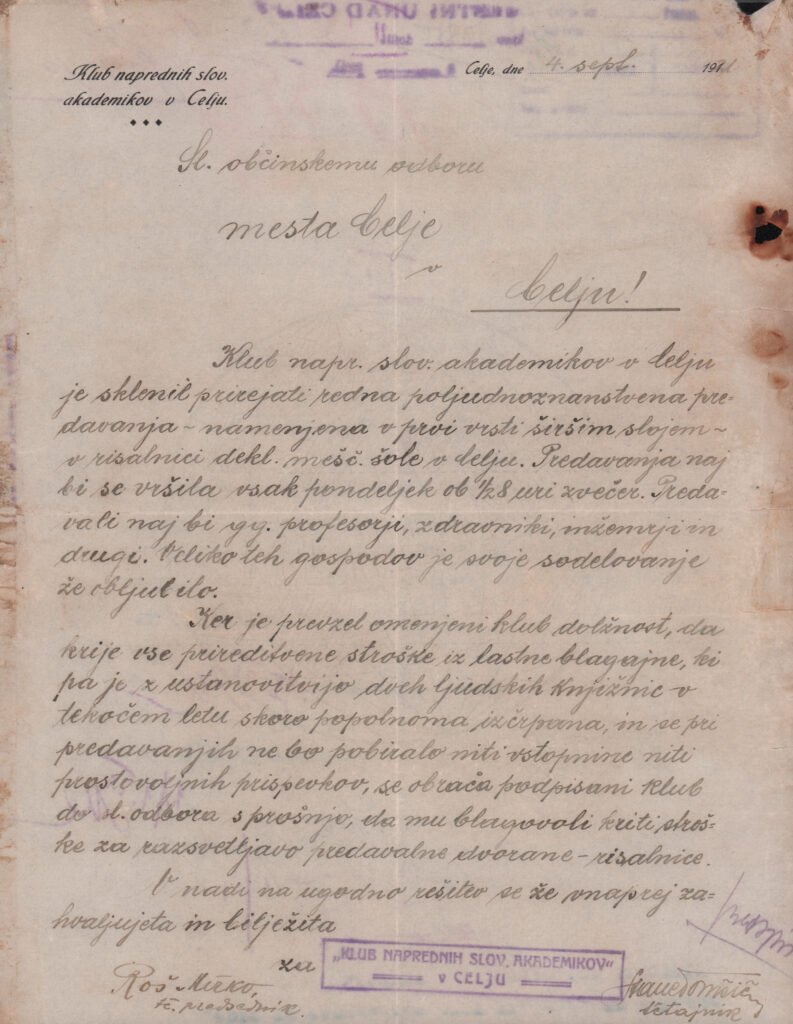 Klub naprednih slov.
akademikov v Celju.
Celje, dne 4. sept. 191
Sl. občinskemu odboru
mesta Celje
v
Celju!
Klub napr. slov. akademikov v Celju
je sklenil prirejati redna poljudnoznanstvena pre-
davanja - namenjena v prvi vrsti širšim slojem -
v risalnici dekl. mešč. šole v Celju. Predavanja naj
bi se vršila vsak pondeljek ob 1/28 uri zvečer. Preda-
vali naj bi gg. profesorji, zdravniki, inženirji in
drugi. Veliko teh gospodov je svoje sodelovanje
že obljubilo.
Ker je prevzel omenjeni klub dolžnost, da
krije vse prireditvene stroške iz lastne blagajne, ki
pa je z ustanovitvijo dveh ljudskih knjižnic v
tekočem letu skoro popolnoma izčrpana, in se pri
predavanjih ne bo pobiralo niti vstopnine niti
prostovoljnih prispevkov, se obrača podpisani klub
do sl. odbora s prošnjo, da mu blagovoli kriti stroš-
ke za razsvetljavo predavalne dvorane - risalnice.
V nadi na ugodno rešitev se že vnaprej za-
hvaljujeta in bilježita
za
"KLUB NAPREDNIH SLOV. AKADEMIKOV"
V CELJU
Roš Mirko,
t. č. predsednik.
t. č. tajnik